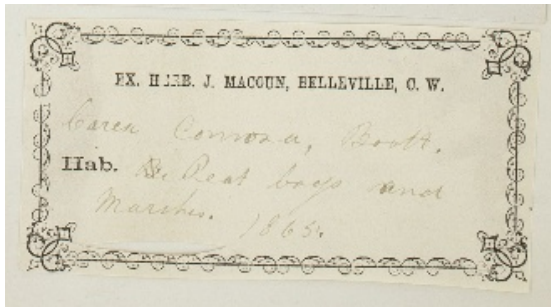 EX. HERB. J. MACOUN, BELLEVILLE, C. W.
Carex Comosa, Boott.
Hab. Peat bogs and
Marshes. 1865.